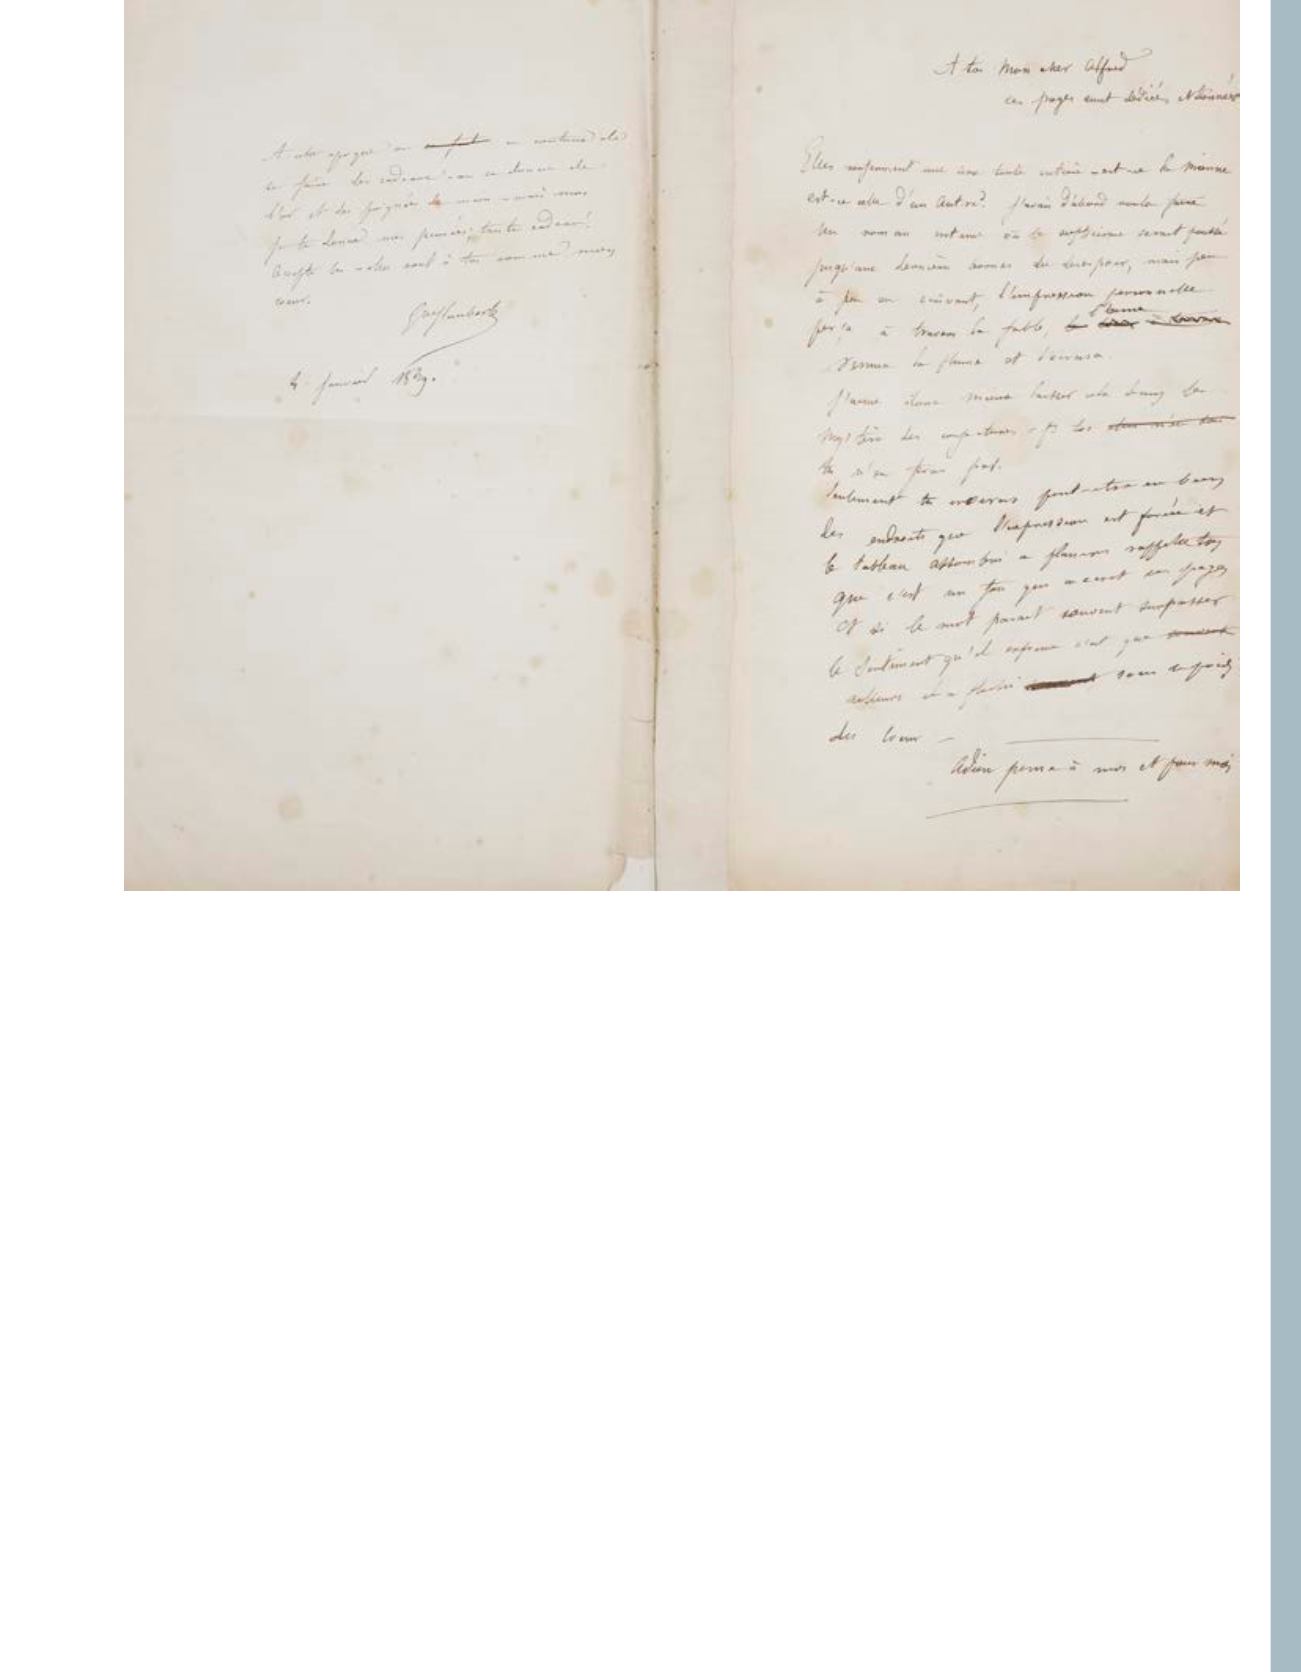 A cette époque on en coutume de
se faire des cadeaux - on se donne de
l'or et des poignées de main - mais moi
je te donne mes pensées, triste cadeau!
Accepte les - elles sont à toi comme mon
cœur.
Gve Flaubert
4 janvier 1839.
A toi mon cher Alfred
ces pages sont dédiées et données
Elles renferment une âme toute entière - est-ce la mienne
est-ce celle d'un autre? j'avais d'abord voulu faire
un roman intime où le scepticisme serait poussé
jusqu'aux dernières bornes du désespoir, mais peu
à peu en écrivant, l'impression personnelle
perça à travers la fable, l'âme
remua la plume et l'écrasa.
J'aime donc mieux laisser cela dans le
mystère des conjectures - pr toi
tu n'en feras pas.
Seulement tu croiras peut-être en bien
des endroits que l'expression est forcée et
le tableau assombri à plaisir rappelle toi
que c'est un fou qui a écrit ces pages
et si le mot paraît souvent surpasser
le sentiment qu'il exprime c'est que
ailleurs il a fléchi sous le poids
du cœur -
Adieu pense à moi et pour moi